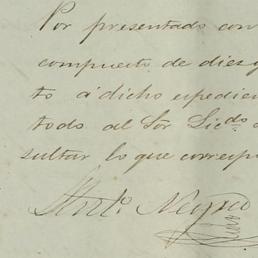 Por presentado con
compuesto de dies y
to á dicho espedien
todo al Sor Licdo
sultar lo que corresp
Anto. Negrco